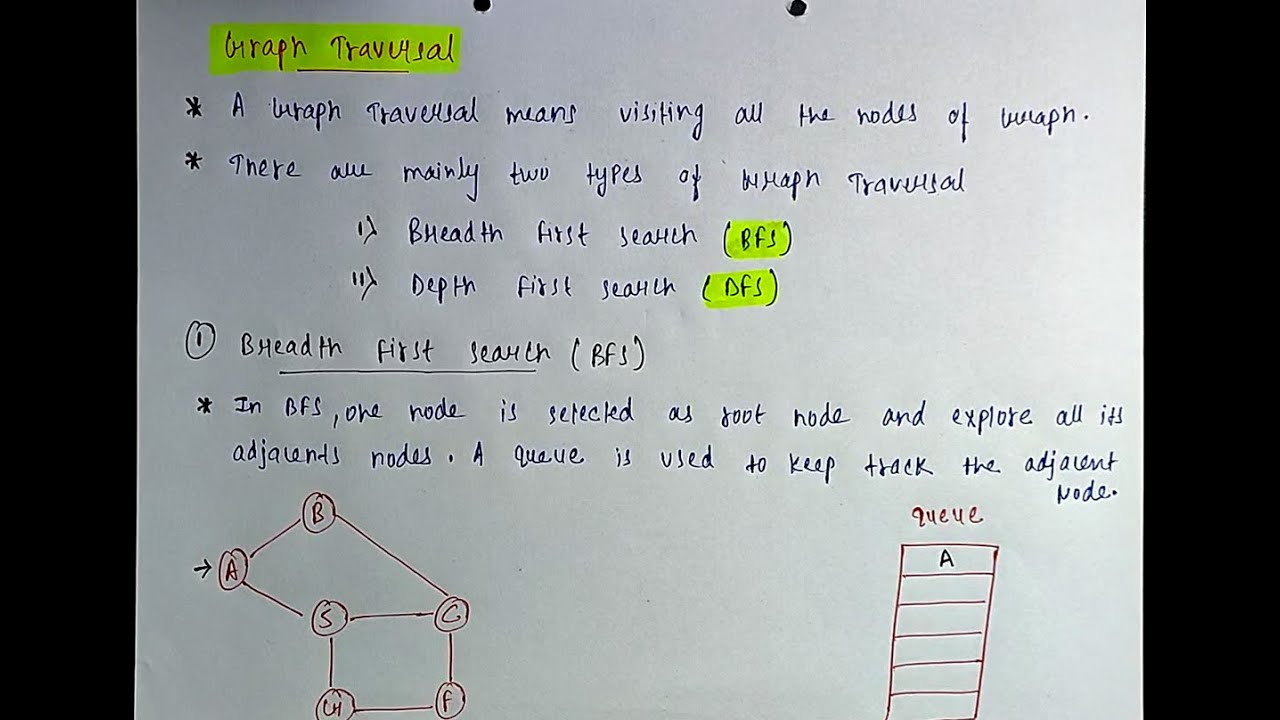 Graph Traversal
* A Graph Traversal means visiting all the nodes of Graph.
* There are mainly two types of Graph Traversal
i) Breadth First Search (BFS)
ii) Depth First Search (DFS)
① Breadth First Search (BFS)
* In BFS, one node is selected as root node and explore all its
adjacents nodes. A queue is used to keep track the adjacent
Node.
queue
B
A
A
S
C
G
F